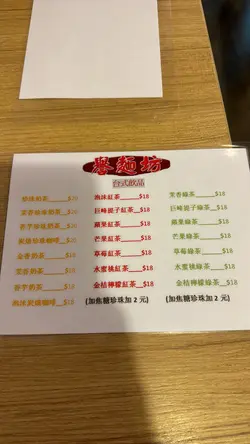 譽麵坊
台式飲品
珍珠奶茶____$20
茉香珍珠奶茶__$20
香芋珍珠奶茶__$20
炭燒珍珠咖啡__$20
金香奶茶____$18
茉香奶茶____$18
香芋奶茶____$18
泡沫炭燒咖啡__$18
泡沫紅茶______$18
巨峰提子紅茶__$18
蘋果紅茶______$18
芒果紅茶______$18
草莓紅茶______$18
水蜜桃紅茶____$18
金桔檸檬紅茶__$18
(加焦糖珍珠加 2 元)
茉香綠茶______$18
巨峰提子綠茶__$18
蘋果綠茶______$18
芒果綠茶______$18
草莓綠茶______$18
水蜜桃綠茶____$18
金桔檸檬綠茶__$18
(加焦糖珍珠加 2 元)